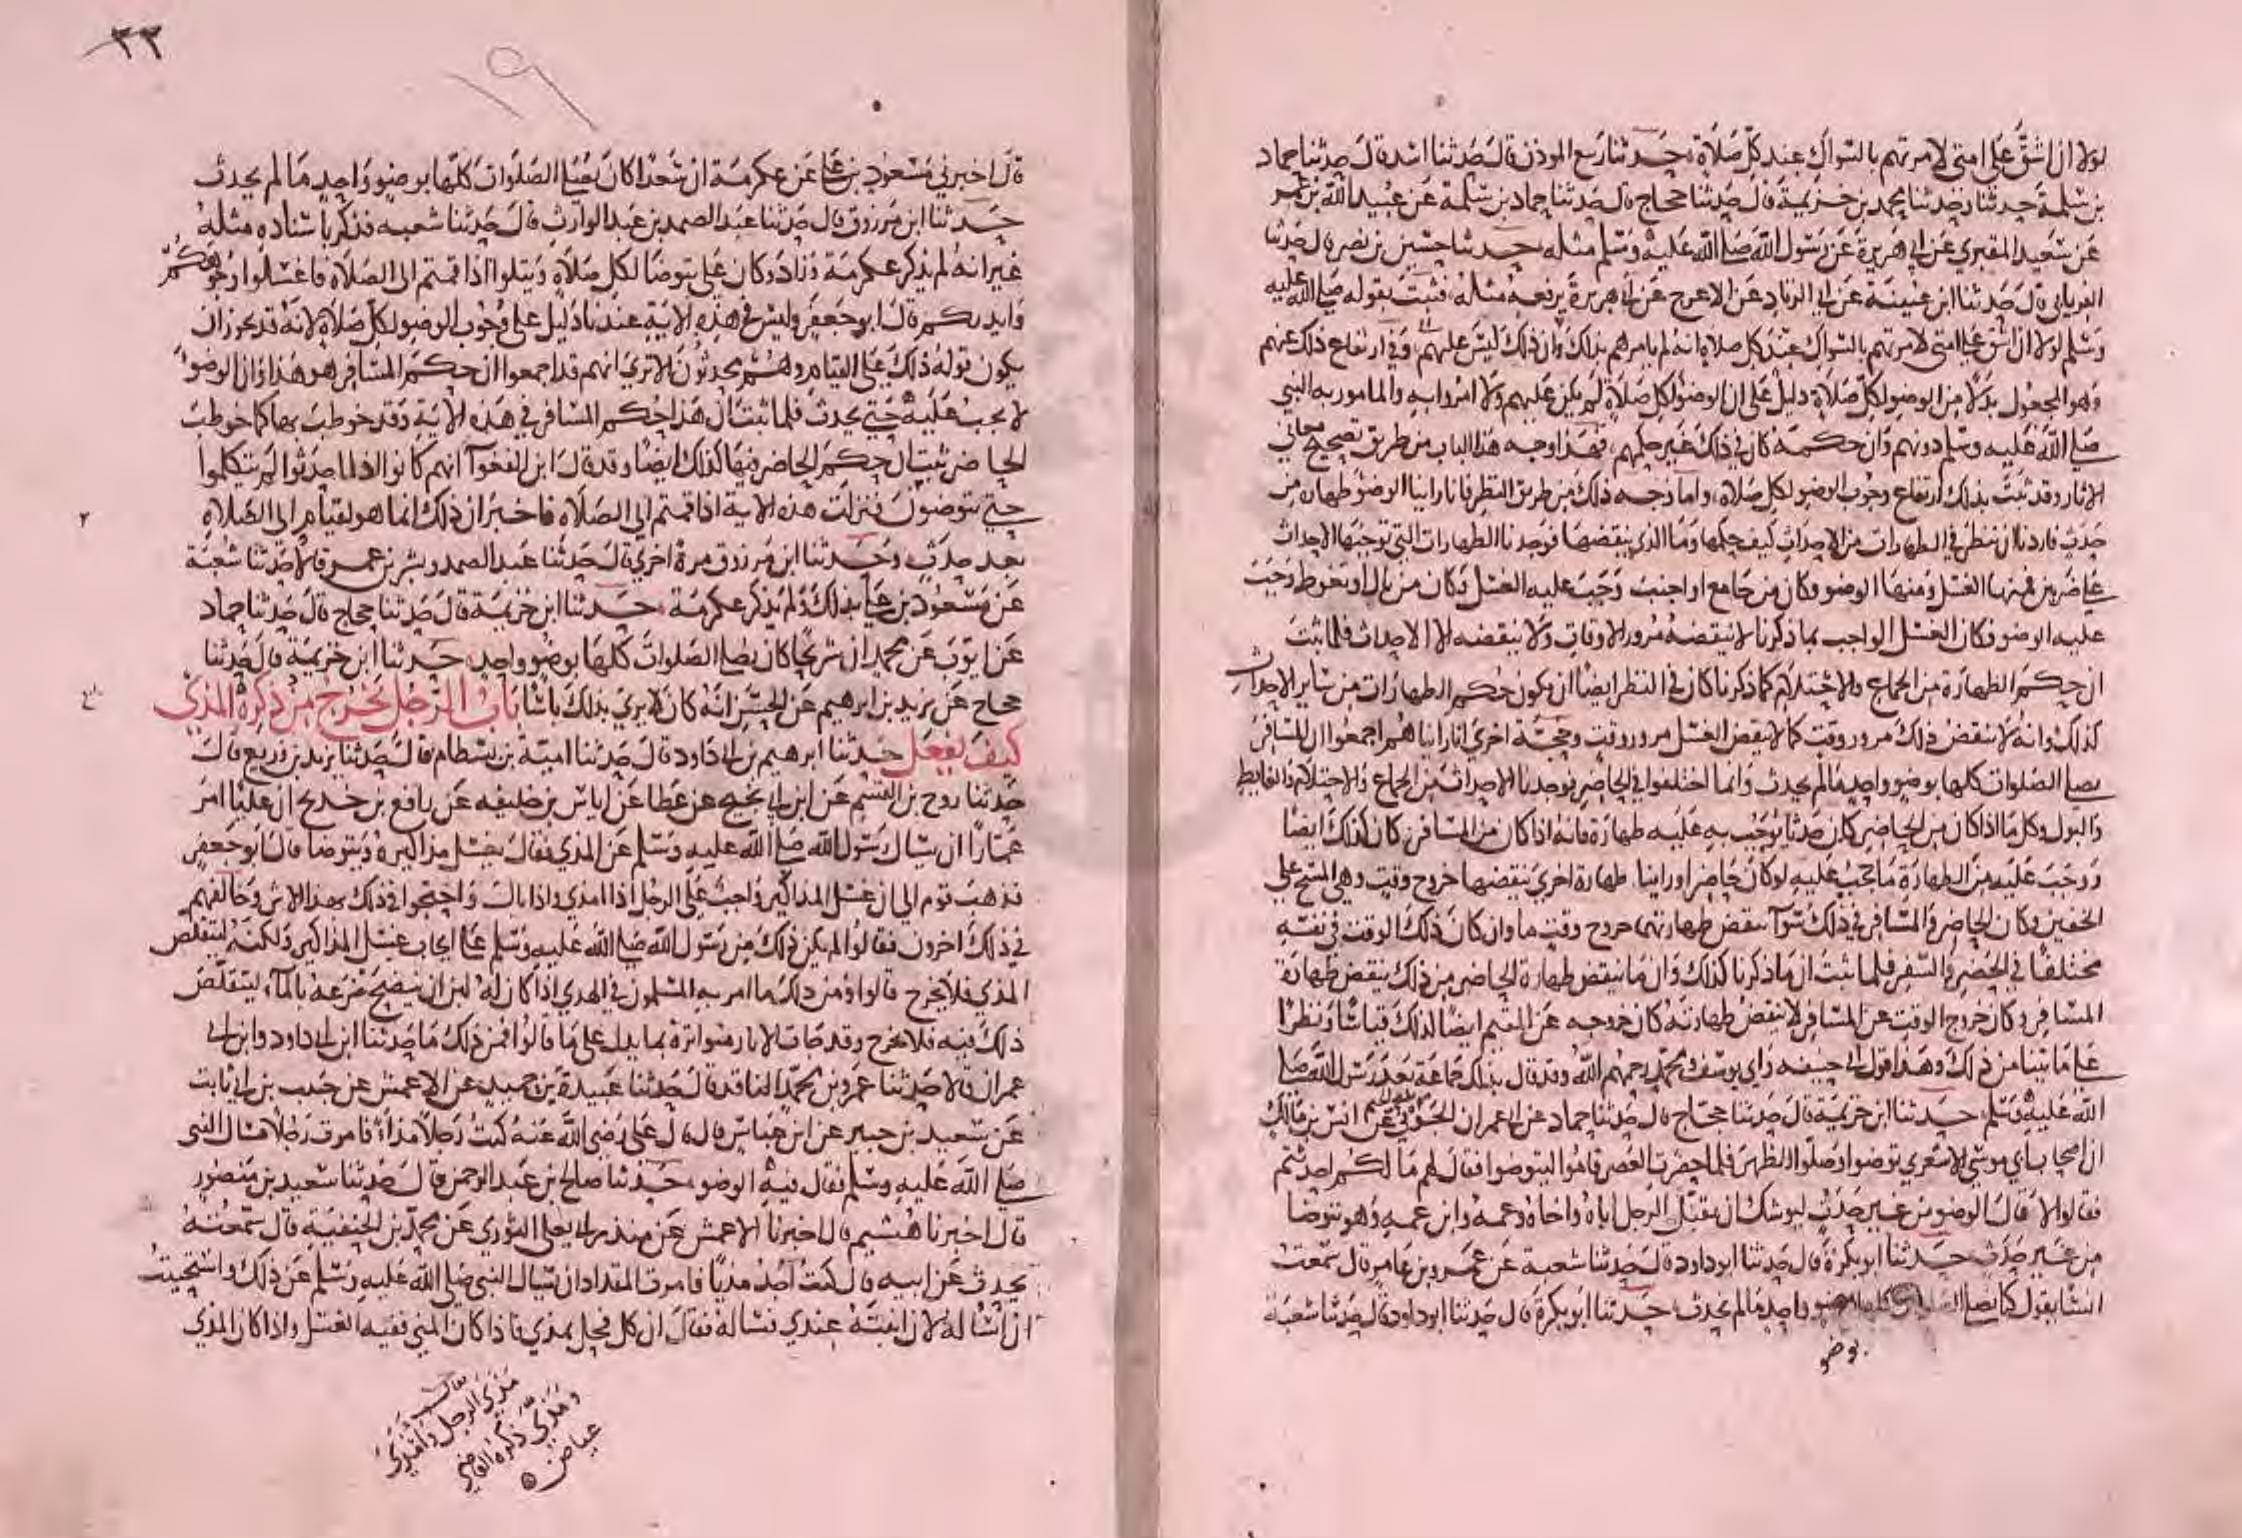 لولا ان اشق على امتي لامرتهم بالسواك عند كل صلاة حدثنا ربيع الموذن قال حدثنا اسد قال حدثنا حماد
بن سلمة حدثنا محمد بن خزيمة قال حدثنا حجاج قال حدثنا حماد بن سلمة عن عبيد الله بن عمر
عن سعيد المقبري عن ابي هريرة عن رسول الله صلى الله عليه وسلم مثله حدثنا حسين بن نصر قال حدثنا
الفريابي قال حدثنا ابن عيينة عن ابي الزناد عن الاعرج عن ابي هريرة يرفعه مثله فثبت بقوله صلى الله عليه
وسلم لولا ان اشق على امتي لامرتهم بالسواك عند كل صلاة انه لم يامرهم بذلك وان ذلك ليس عليهم وفي ارتفاع ذلك عنهم
وهو المجعول بدلا من الوضو لكل صلاة دليل على ان الوضو لكل صلاة لم يكن عليهم ولا امروا به والمامور به النبي
صلى الله عليه وسلم دونهم وان حكمه كان في ذلك غير حكمهم فهذا وجه هذا الباب من طريق تصحيح معاني
الاثار وقد ثبت بذلك ارتفاع وجوب الوضو لكل صلاة واما وجه ذلك من طريق النظر فانا راينا الوضو طهارة من
حدث فاردنا ان ننظر في الطهارات من الاحداث كيف حكمها وما الذي ينقضها فوجدنا الطهارات التي توجبها الاحداث
على ضربين فمنها الغسل ومنها الوضو وكان من جامع او اجنب وجب عليه الغسل وكان من بال او تغوط وجب
عليه الوضو فكان الغسل الواجب بما ذكرنا لا ينقضه مرور الاوقات ولا ينقضه الا الاحداث فلما ثبت
ان حكم الطهارة من الجماع والاحتلام كما ذكرنا كان في النظر ايضا ان يكون حكم الطهارات من سائر الاحداث
كذلك وانه لا ينقض ذلك مرور وقت كما لا ينقض الغسل مرور وقت وحجة اخرى انا راينا هم اجمعوا ان المسافر
يصلي الصلوات كلها بوضو واحد ما لم يحدث وانما اختلفوا في الحاضر فوجدنا الاحداث من الجماع والاحتلام والغايط
والبول وكل ما اذا كان من الحاضر كان حدثا يوجب به عليه طهارة فانه اذا كان من المسافر كان كذلك ايضا
ووجب عليه من الطهارة ما يجب عليه لو كان حاضرا وراينا طهارة اخرى ينقضها خروج وقت وهي المسح على
الخفين فكان الحاضر والمسافر في ذلك سوآ ينقض طهارتهما خروج وقت ما وان كان ذلك الوقت في نفسه
مختلفا في الحضر والسفر فلما ثبت ان ما ذكرنا كذلك وان ما ينقض طهارة الحاضر من ذلك ينقض طهارة
المسافر وكان خروج الوقت عن المسافر لا ينقض طهارته كان خروجه عن المقيم ايضا كذلك قياسا ونظرا
على ما بينا من ذلك وهذا قول ابي حنيفه وابي يوسف ومحمد رحمهم الله وقد قال بذلك جماعة بعد رسول الله صلى
الله عليه وسلم حدثنا ابن خزيمة قال حدثنا حجاج قال حدثنا حماد عن ابي عمران الجوني عن انس بن مالك
ان اصحاب ابي موسى الاشعري توضوا وصلوا الظهر فلما حضرت العصر قاموا ليتوضوا فقال لهم ما لكم احدثتم
فقالوا لا قال الوضو من غير حدث ليوشك ان يقتل الرجل اباه واخاه وعمه وابن عمه وهو يتوضا
من غير حدث حدثنا ابو بكرة قال حدثنا ابو داود قال حدثنا شعبة عن عمرو بن عامر قال سمعت
انسا يقول كنا نصلي الصلوات كلها بوضو واحد ما لم نحدث حدثنا ابو بكرة قال حدثنا ابو داود قال حدثنا شعبة
بوضو
٣٣
١٩
قال اخبرني مسعود بن علي عن عكرمة ان سعدا كان يصلي الصلوات كلها بوضو واحد ما لم يحدث
حدثنا ابن مرزوق قال حدثنا عبد الصمد بن عبد الوارث قال حدثنا شعبه فذكر باسناده مثله
غير انه لم يذكر عكرمة وزاد وكان علي يتوضا لكل صلاة ويتلوا اذا قمتم الى الصلاة فاغسلوا وجوهكم
وايديكم قال ابو جعفر وليس في هذه الاية عندنا دليل على وجوب الوضو لكل صلاة لانه قد يجوز ان
يكون قوله ذلك على القيام وهم محدثون الا ترى انهم قد اجمعوا ان حكم المسافر هو هذا وان الوضو
لا يجب عليه حتى يحدث فلما ثبت ان هذا حكم المسافر في هذه الاية وقد خوطب بها كما خوطب
الحاضر ثبت ان حكم الحاضر فيها كذلك ايضا وقد قال ابن الفغوآ انهم كانوا اذا احدثوا لم يتكلموا
حتى يتوضون فنزلت هذه الاية اذا قمتم الى الصلاة فاخبر ان ذلك انما هو لقيام الى الصلاة
بعد حدث وحدثنا ابن مرزوق مرة اخرى قال حدثنا عبد الصمد وبشر بن عمر قالا حدثنا شعبة
عن مسعود بن علي بذلك ولم يذكر عكرمة حدثنا ابن خزيمة قال حدثنا حجاج قال حدثنا حماد
عن ايوب عن محمد ان شريحا كان يصلي الصلوات كلها بوضو واحد حدثنا ابن خزيمة قال حدثنا
حجاج عن يزيد بن ابرهيم عن الحسن انه كان لا يرى بذلك باسا باب الرجل يخرج من ذكره المذي
كيف يفعل حدثنا ابرهيم بن ابي داود قال حدثنا امية بن بسطام قال حدثنا يزيد بن زريع قال
حدثنا روح بن القسم عن ابن ابي نجيح عن عطا عن اياس بن خليفه عن رافع بن خديج ان عليا امر
عمارا ان يسال رسول الله صلى الله عليه وسلم عن المذي فقال يغسل مذاكيره ويتوضا قال ابو جعفر
فذهب قوم الى ان غسل المذاكير واجب على الرجل اذا امذى واذا بال واحتجوا في ذلك بهذا الاثر وخالفهم
في ذلك اخرون فقالوا لم يكن ذلك من رسول الله صلى الله عليه وسلم على ايجاب غسل المذاكير ولكنه ليتقلص
المذي فلا يخرج قالوا ومن ذلك ما امر به المسلمون في الهدي اذا كان له لبن ان ينضح ضرعه بالمآ ليتقلص
ذلك فيه فلا يخرج وقد جات الاثار متواترة بما يدل على ما قالوا فمن ذلك ما حدثنا ابن ابي داود وابن ابي
عمران قالا حدثنا عمرو بن محمد الناقد قال حدثنا عبيدة بن حميد عن الاعمش عن حبيب بن ابي ثابت
عن سعيد بن جبير عن ابن عباس قال قال علي رضي الله عنه كنت رجلا مذاء فامرت رجلا فسال النبي
صلى الله عليه وسلم فقال فيه الوضو حدثنا صالح بن عبد الرحمن قال حدثنا سعيد بن منصور
قال اخبرنا هشيم قال اخبرنا الاعمش عن منذر ابي يعلى الثوري عن محمد بن الحنفية قال سمعته
يحدث عن ابيه قال كنت اجد مذيا فامرت المقداد ان يسال النبي صلى الله عليه وسلم عن ذلك واستحييت
ان اساله لان ابنته عندي فساله فقال ان كل فحل يمذي فاذا كان المني ففيه الغسل واذا كان المذي
يقال
مذى الرجل وامذى
ومذّى ذكره القاضي
عياض